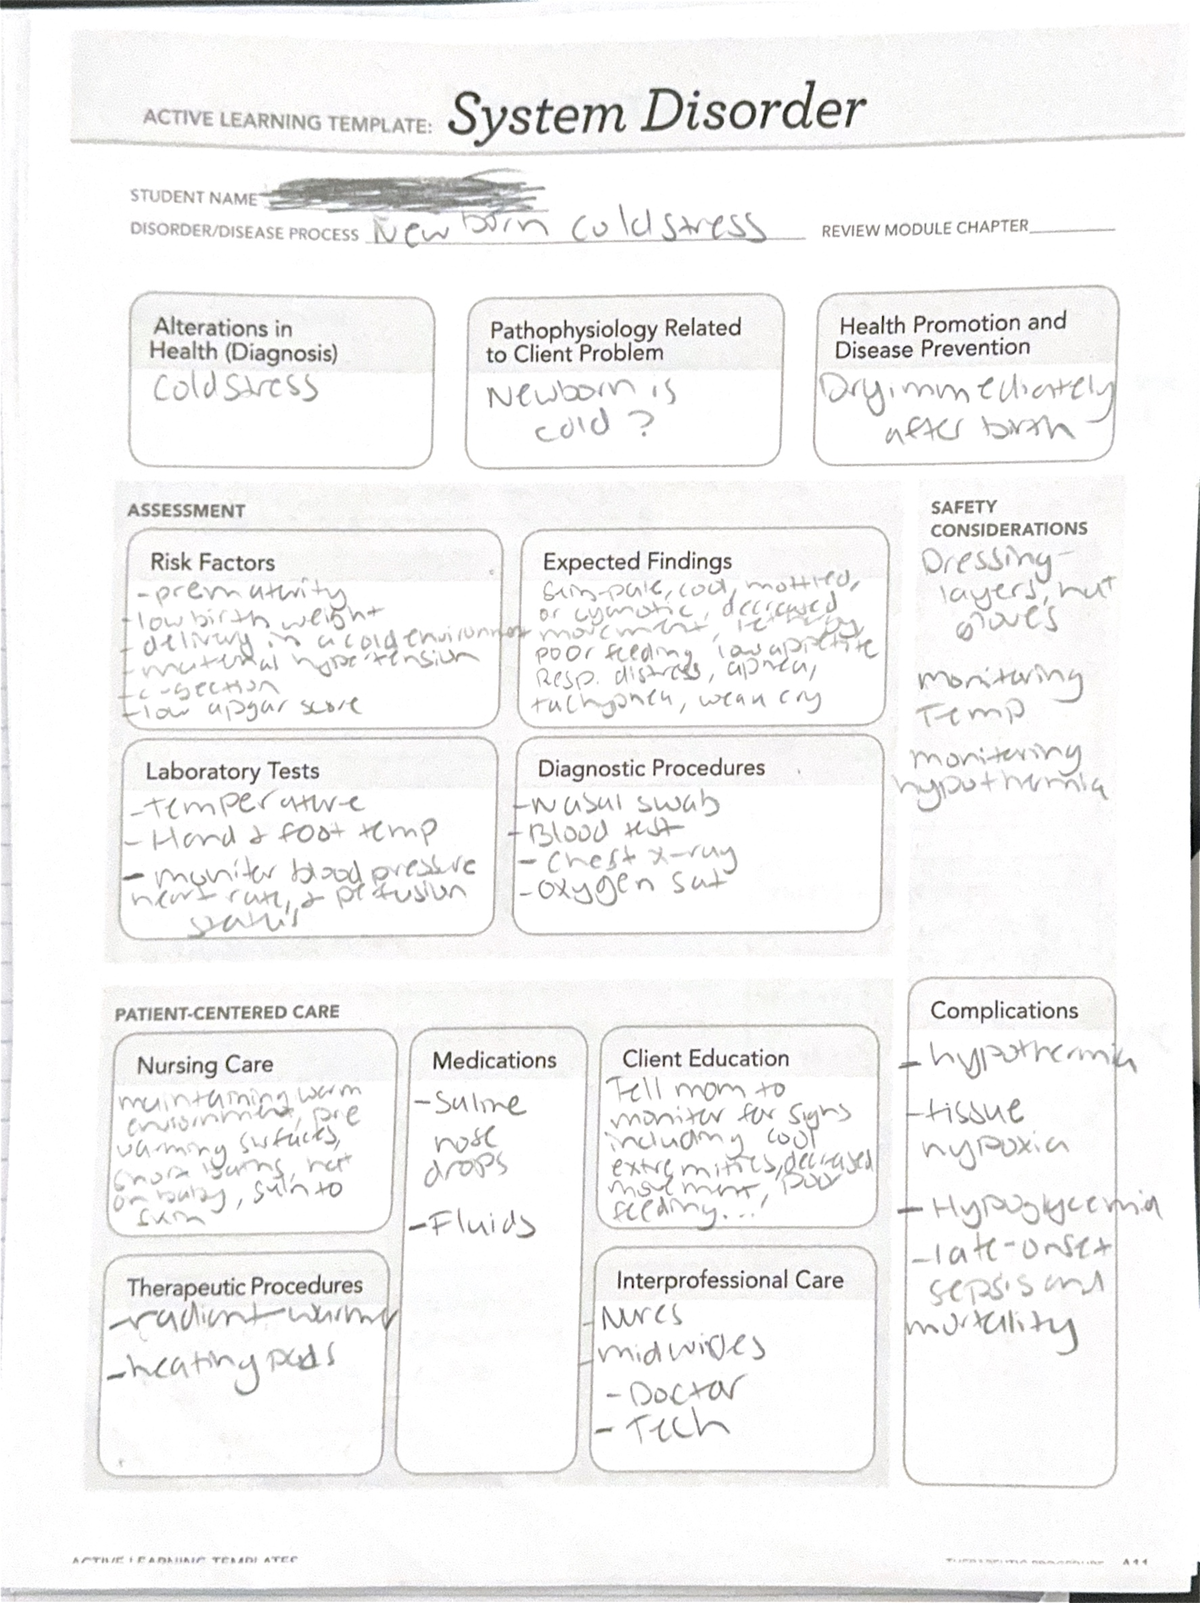 ACTIVE LEARNING TEMPLATE: System Disorder
STUDENT NAME
DISORDER/DISEASE PROCESS Newborn cold stress REVIEW MODULE CHAPTER
Alterations in
Health (Diagnosis)
Cold stress
Pathophysiology Related
to Client Problem
Newborn is
cold?
Health Promotion and
Disease Prevention
Dry immediately
after birth
ASSESSMENT
Risk Factors
- prematurity
- low birth weight
- delivery in a cold environment
- maternal hypertension
- c-section
- low apgar score
Expected Findings
Skin-pale, cool, mottled,
or cyanotic, decreased
movement, lethargy,
poor feeding, low appitite
Resp. distress, apnea,
tachypnea, weak cry
SAFETY
CONSIDERATIONS
Dressing-
layers, hat
gloves
monitoring
Temp
monitering
hypothermia
Laboratory Tests
- temperature
- Hand & foot temp
- moniter blood pressure
heart rate, & perfusion
status
Diagnostic Procedures
- Nasal swab
- Blood test
- Chest x-ray
- Oxygen sat
PATIENT-CENTERED CARE
Nursing Care
maintaining warm
enviornment, pre
warming surfaces,
hat
on baby, skin to
skin
Medications
- Saline
nose
drops
- Fluids
Client Education
Tell mom to
monitor for signs
including cool
extremities, decreased
movement, poor
feeding...
Therapeutic Procedures
- radient warmer
- heating pads
Interprofessional Care
- Nures
- midwives
- Doctor
- Tech
Complications
- hypothermia
- tissue
hypoxia
- Hypoglycemia
- late-onset
sepsis and
mortality
ACTIVE LEARNING TEMPLATES
THERAPEUTIC PROCEDURE A11